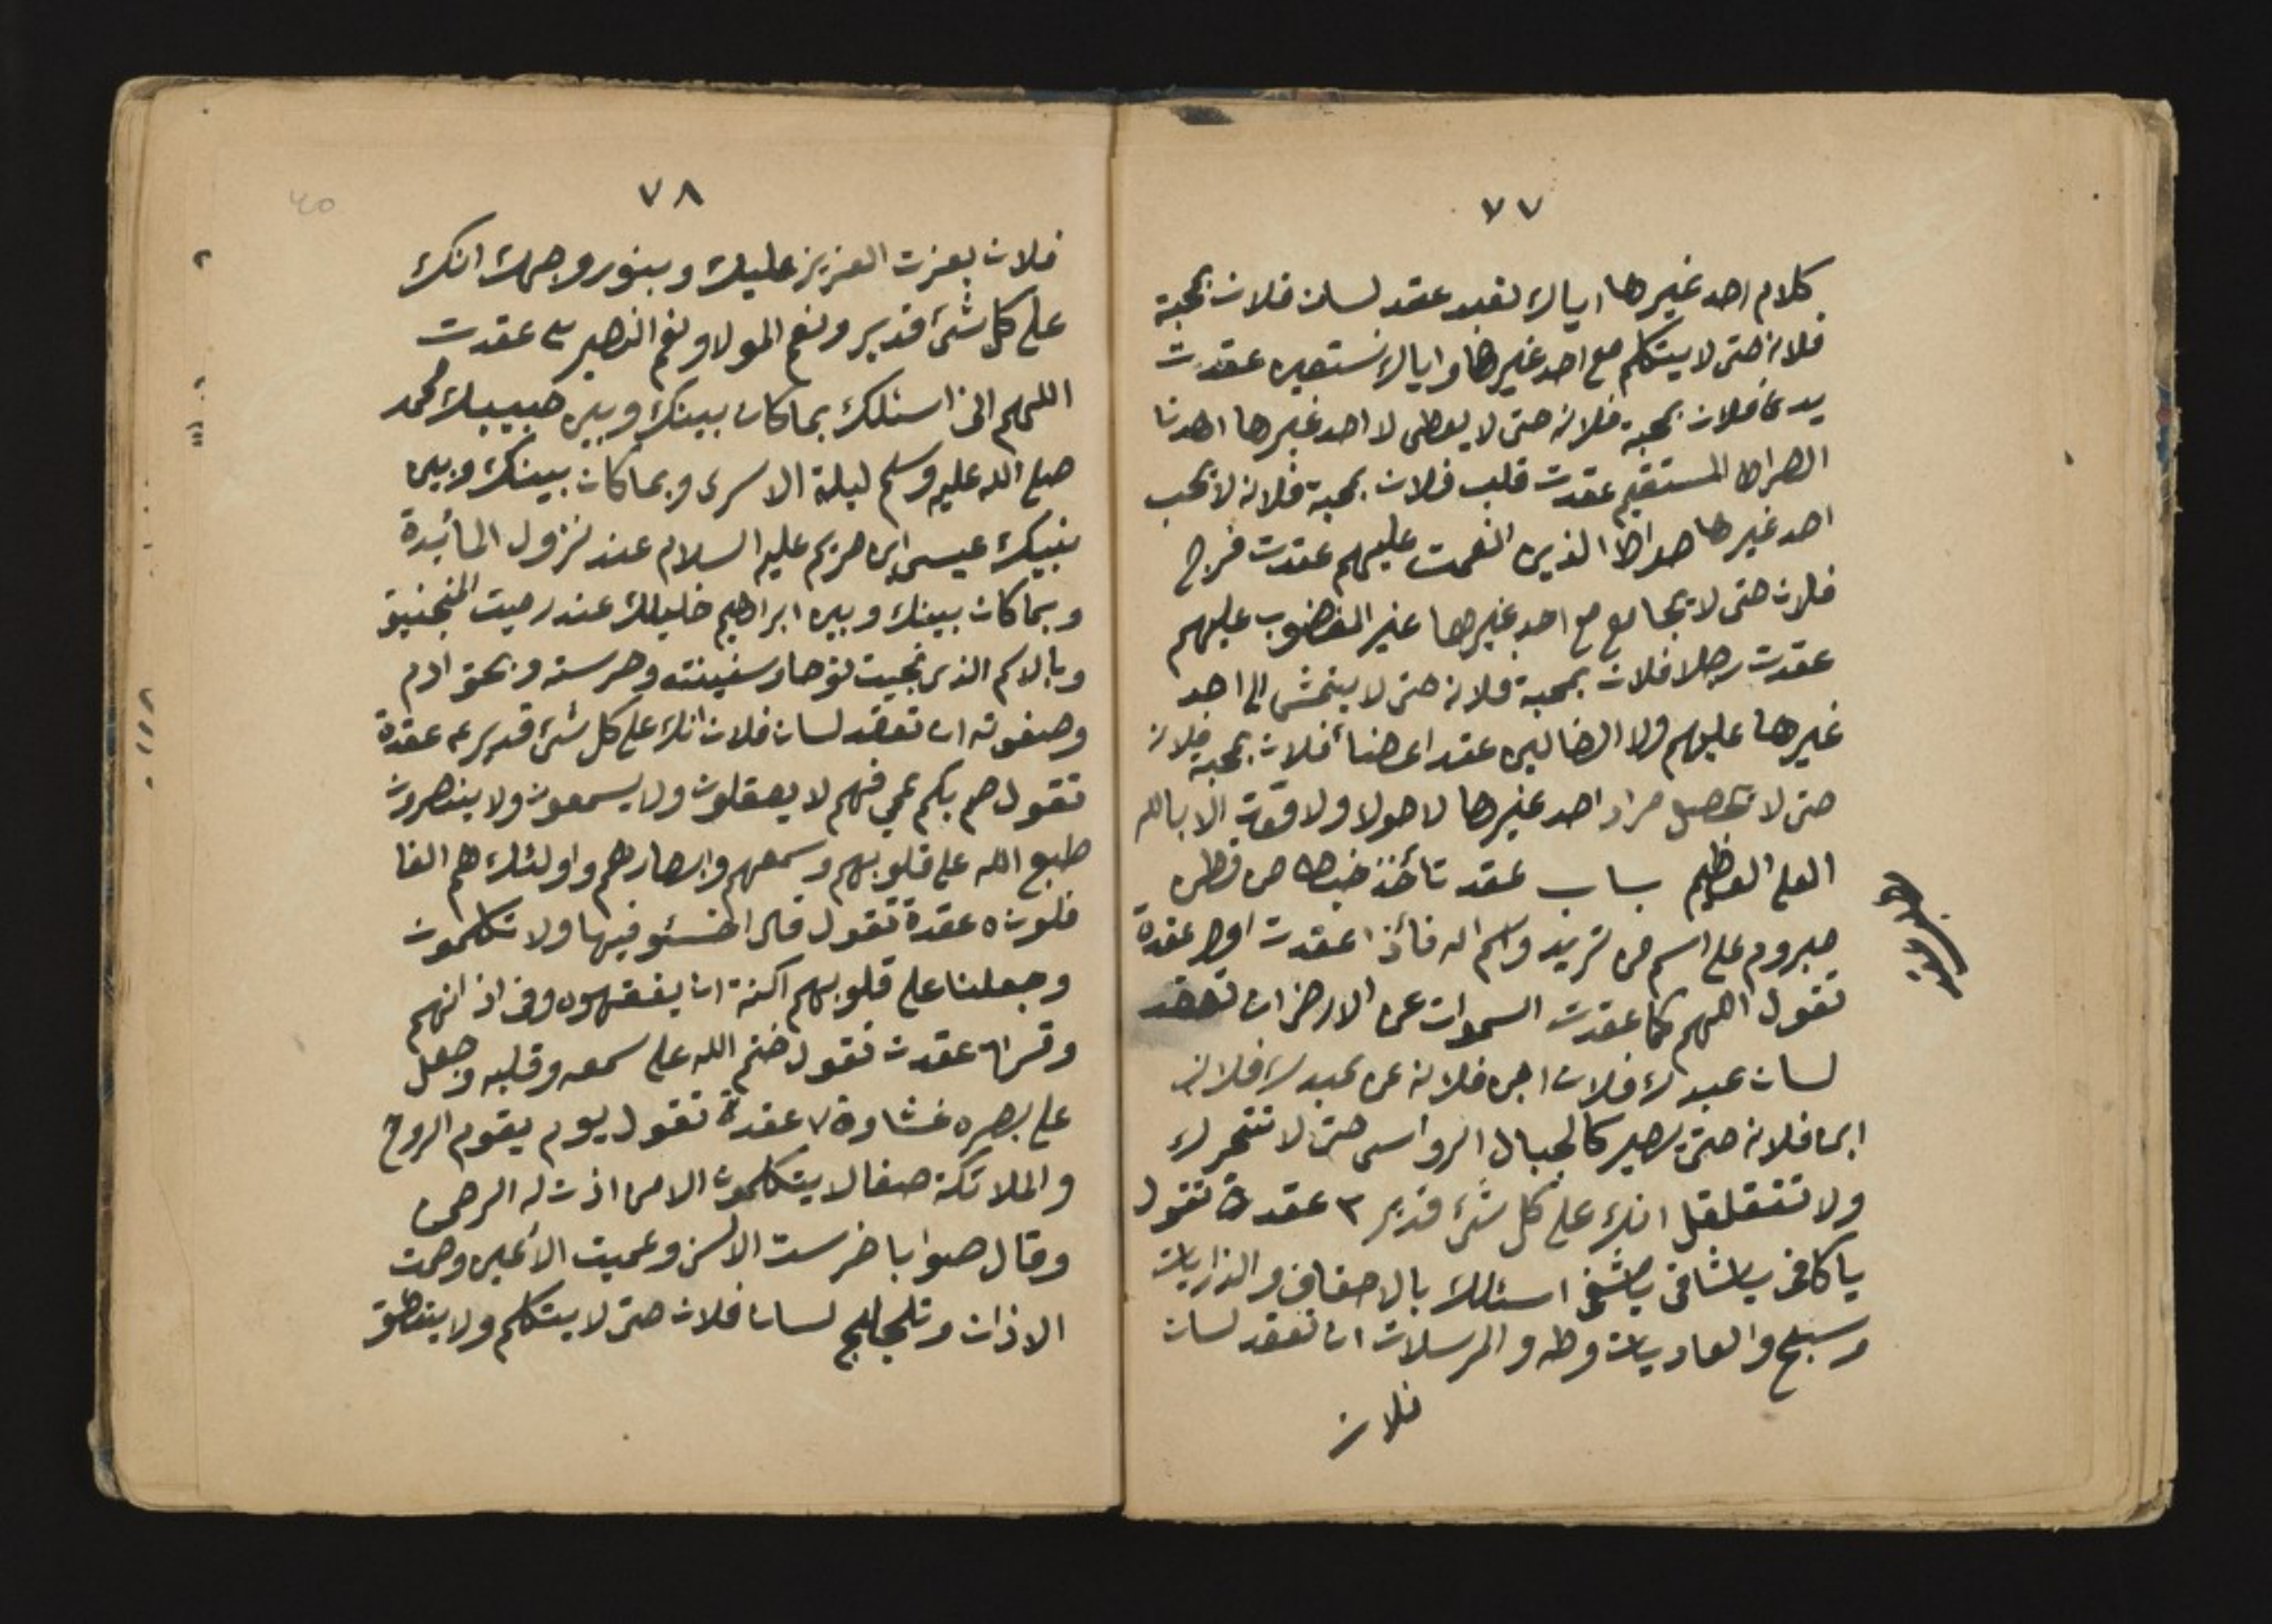 ٧٧
كلام احد غيرها اياك نعبد عقد لسان فلان بمحبة
فلانه حتى لا يتكلم مع احد غيرها واياك نستعين عقدت
يدى فلان بمحبة فلانه حتى لا يعطى لا احد غيرها اهدنا
الصراط المستقيم عقدت قلب فلان بمحبة فلانه لا يحب
احد غيرها صراط الذين انعمت عليهم عقدت فرج
فلان حتى لا يجامع مع احد غيرها غير المغضوب عليهم
عقدت رجلا فلان بمحبة فلانه حتى لا يتمشى الى احد
غيرها عليهم ولا الضالين عقد اعضنا فلان بمحبة فلانه
حتى لا تحصل مراد احد غيرها لا حولا ولا قوت الا بالله
العلى العظيم باب عقد تأخذ خيط من قطن
مبروم على اسم من تريد واسم امه فأذا عقدت اول عقدة
تقول اللهم كما عقدت السموات عن الارض ان تعقد
لسان عبدك فلان ابن فلانه عن عبدك فلان
ابن فلانه حتى يصير كالجبال الرواسى حتى لا تتحرك
ولا تتقلقل انك على كل شئ قدير ٣ عقدة تقول
يا كافى يا شافى يا مشفى اسئلك بالاحقاف والذاريات
وسبح والعاديات وطه والمرسلات ان تعقد لسان
فلان
٧٨
٤٥
فلان بعزت العزيز عليك وبنور وجهك انك
على كل شئ قدير ونعم المولا ونعم النصير ٤ عقدت
اللهم انى اسئلك بما كان بينك وبين حبيبك محمد
صلى الله عليه وسلم ليلة الاسرى وبما كان بينك وبين
نبيك عيسى ابن مريم عليه السلام عند نزول المائيدة
وبما كان بينك وبين ابراهيم خليلك عند رميت المنجنيق
وبالاسم الذى نجيت نوحا وسفينته وحرسته وبحق ادم
وصفوته ان تعقد لسان فلان انك على كل شئ قدير عقدة
تقول صم بكم عمي فهم لا يعقلون ولا يسمعون ولا ينصرون
طبع الله على قلوبهم وسمعهم وابصارهم واولئك هم الغا
فلون ٥ عقدة تقول قال اخسئو فيها ولا تكلمون
وجعلنا على قلوبهم اكنة ان يفقهوه وفى اذانهم
وقرا ٦ عقدت تقول ختم الله على سمعه وقلبه وجعل
على بصره غشاوة ٧ عقدة تقول يوم يقوم الروح
والملائكة صفا لا يتكلمون الا من اذن له الرحمن
وقال صوابا خرست الالسن وعميت الأعين وصمت
الاذان وتلجلج لسان فلان حتى لا يتكلم ولا ينطق